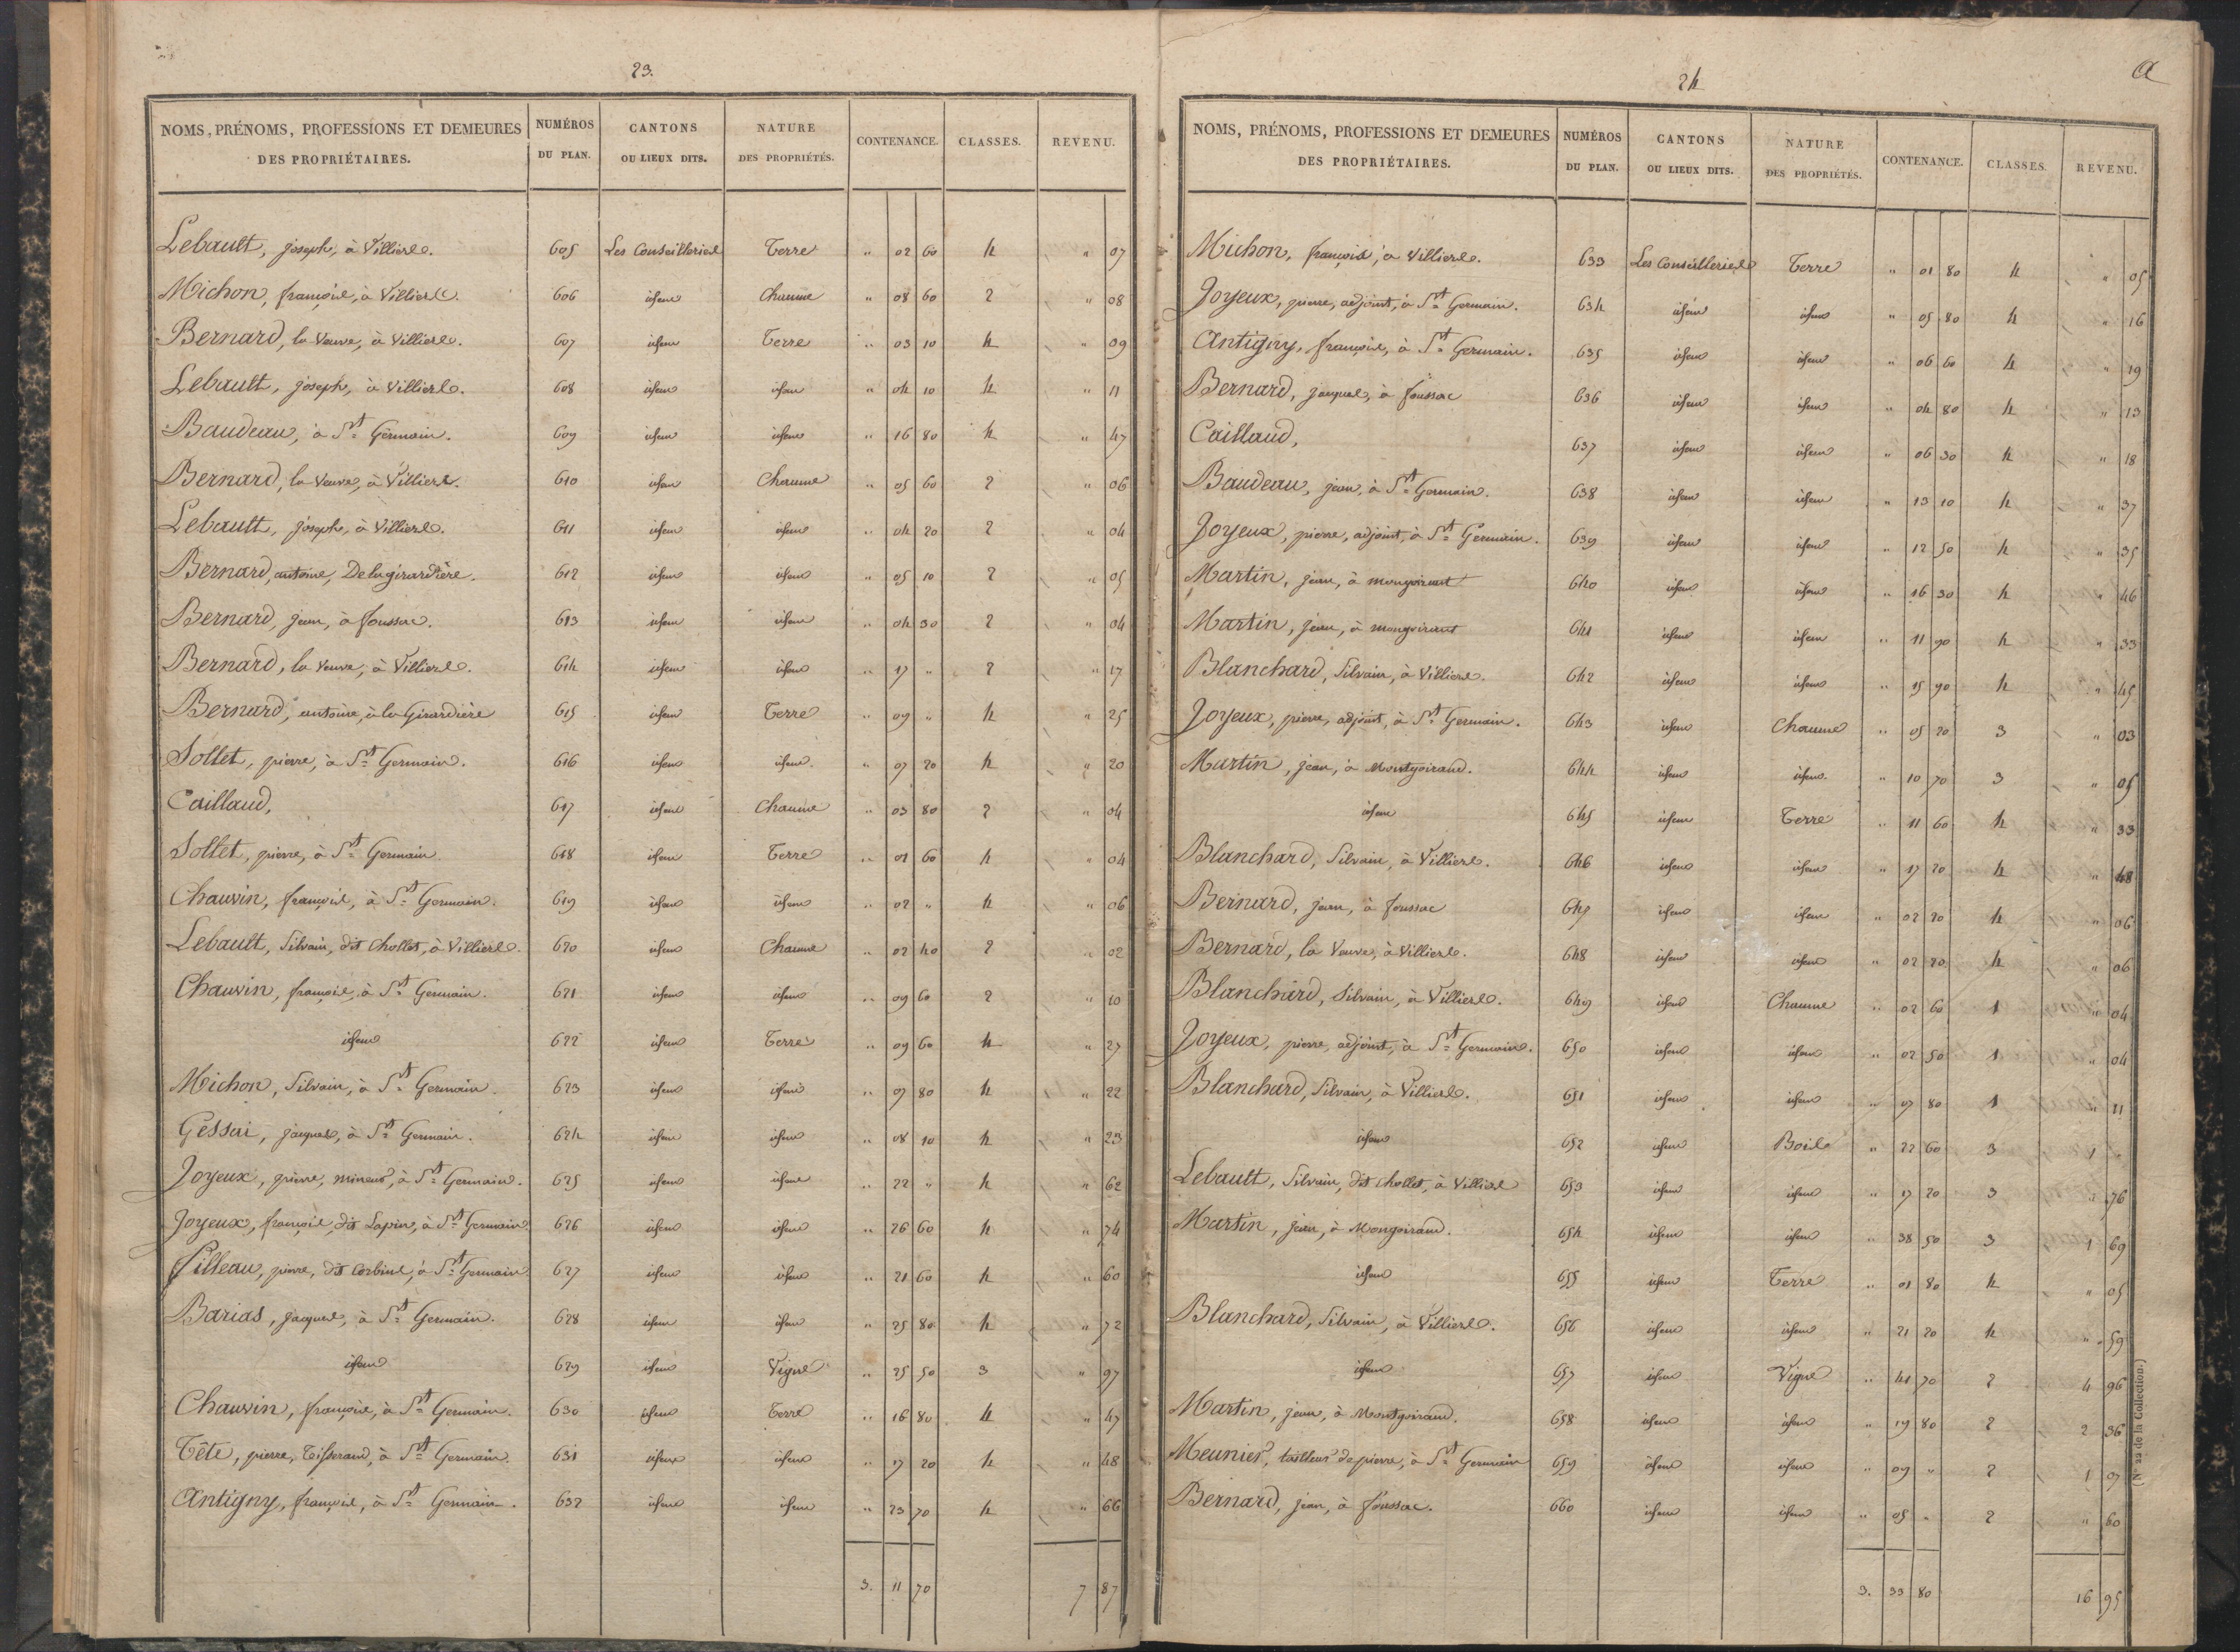 23.
NOMS, PRÉNOMS, PROFESSIONS ET DEMEURES DES PROPRIÉTAIRES. NUMÉROS DU PLAN. CANTONS OU LIEUX DITS. NATURE DES PROPRIÉTÉS. CONTENANCE. CLASSES. REVENU.
Lebault, joseph, à Villiers. 605 Les Conseilleries Terre " 02 60 4 " 07
Michon, françois, à Villiers. 606 idem Chaume " 08 60 2 " 08
Bernard, la Veuve, à Villiers. 607 idem Terre " 03 10 4 " 09
Lebault, joseph, à Villiers. 608 idem idem " 04 10 4 " 11
Baudeau, à St Germain. 609 idem idem " 16 80 4 " 47
Bernard, la Veuve, à Villiers. 610 idem Chaume " 05 60 2 " 06
Lebault, joseph, à Villiers. 611 idem idem " 04 20 2 " 04
Bernard, antoine, De la girardière. 612 idem idem " 05 10 2 " 05
Bernard, jean, à foussac. 613 idem idem " 04 30 2 " 04
Bernard, la Veuve, à Villiers. 614 idem idem " 17 " 2 " 17
Bernard, antoine, à la Girardière 615 idem Terre " 09 " 4 " 25
Sollet, pierre, à St Germain. 616 idem idem " 07 20 4 " 20
Caillaud, 617 idem Chaume " 03 80 2 " 04
Sollet, pierre, à St Germain 618 idem Terre " 01 60 4 " 04
Chauvin, françois, à St Germain. 619 idem idem " 02 " 4 " 06
Lebault, Silvain, dit Chollet, à Villiers. 620 idem Chaume " 02 40 2 " 02
Chauvin, françois, à St Germain. 621 idem idem " 09 60 2 " 10
idem 622 idem Terre " 09 60 4 " 27
Michon, Silvain, à St Germain. 623 idem idem " 07 80 4 " 22
Gessai, jacques, à St Germain. 624 idem idem " 08 10 4 " 23
Joyeux, pierre, mineur, à St Germain. 625 idem idem " 22 " 4 " 62
Joyeux, françois, dit Lapin, à St Germain 626 idem idem " 26 60 4 " 74
Pilleau, pierre, dit Corbine, à St Germain 627 idem idem " 21 60 4 " 60
Barias, jacques, à St Germain. 628 idem idem " 25 80 4 " 72
idem 629 idem Vigne " 25 50 3 " 97
Chauvin, françois, à St Germain. 630 idem Terre " 16 80 4 " 47
Tête, pierre, Tisserand, à St Germain. 631 idem idem " 17 20 4 " 48
Antigny, françois, à St Germain. 632 idem idem " 23 70 4 " 66
3. 11 70 7 87
24
a
NOMS, PRÉNOMS, PROFESSIONS ET DEMEURES DES PROPRIÉTAIRES. NUMÉROS DU PLAN. CANTONS OU LIEUX DITS. NATURE DES PROPRIÉTÉS. CONTENANCE. CLASSES. REVENU.
Michon, françois, à Villiers. 633 Les Conseilleries Terre " 01 80 4 " 05
Joyeux, pierre, adjoint, à St Germain. 634 idem idem " 05 80 4 " 16
Antigny, françois, à St Germain. 635 idem idem " 06 60 4 " 19
Bernard, jacques, à foussac 636 idem idem " 04 80 4 " 13
Caillaud, 637 idem idem " 06 30 4 " 18
Baudeau, jean, à St Germain. 638 idem idem " 13 10 4 " 37
Joyeux, pierre, adjoint, à St Germain. 639 idem idem " 12 50 4 " 35
Martin, jean, à mongoiraut 640 idem idem " 16 30 4 " 46
Martin, jean, à mongoiraut 641 idem idem " 11 90 4 " 33
Blanchard, Silvain, à Villiers. 642 idem idem " 15 90 4 " 45
Joyeux, pierre, adjoint, à St Germain. 643 idem Chaume " 05 20 3 " 03
Martin, jean, à Montgoiraud. 644 idem idem " 10 70 3 " 05
idem 645 idem Terre " 11 60 4 " 33
Blanchard, Silvain, à Villiers. 646 idem idem " 17 20 4 " 48
Bernard, jean, à foussac 647 idem idem " 02 20 4 " 06
Bernard, la Veuve, à Villiers. 648 idem idem " 02 20 4 " 06
Blanchard, Silvain, à Villiers. 649 idem Chaume " 02 60 1 " 04
Joyeux, pierre, adjoint, à St Germain. 650 idem idem " 02 50 1 " 04
Blanchard, Silvain, à Villiers. 651 idem idem " 07 80 1 " 11
idem 652 idem Bois " 22 60 3 1 "
Lebault, Silvain, dit Chollet, à Villiers 653 idem idem " 17 20 3 " 76
Martin, jean, à Mongoiraud. 654 idem idem " 38 50 3 1 69
idem 655 idem Terre " 01 80 4 " 05
Blanchard, Silvain, à Villiers. 656 idem idem " 21 20 4 " 59
idem 657 idem Vigne " 41 70 2 4 96
Martin, jean, à Montgoiraud. 658 idem idem " 19 80 2 2 36
Meunier, tailleur de pierre, à St Germain 659 idem idem " 09 " 2 1 07
Bernard, jean, à foussac. 660 idem idem " 05 " 2 " 60
3. 33 80 16 95
(N° 22 de la Collection.)